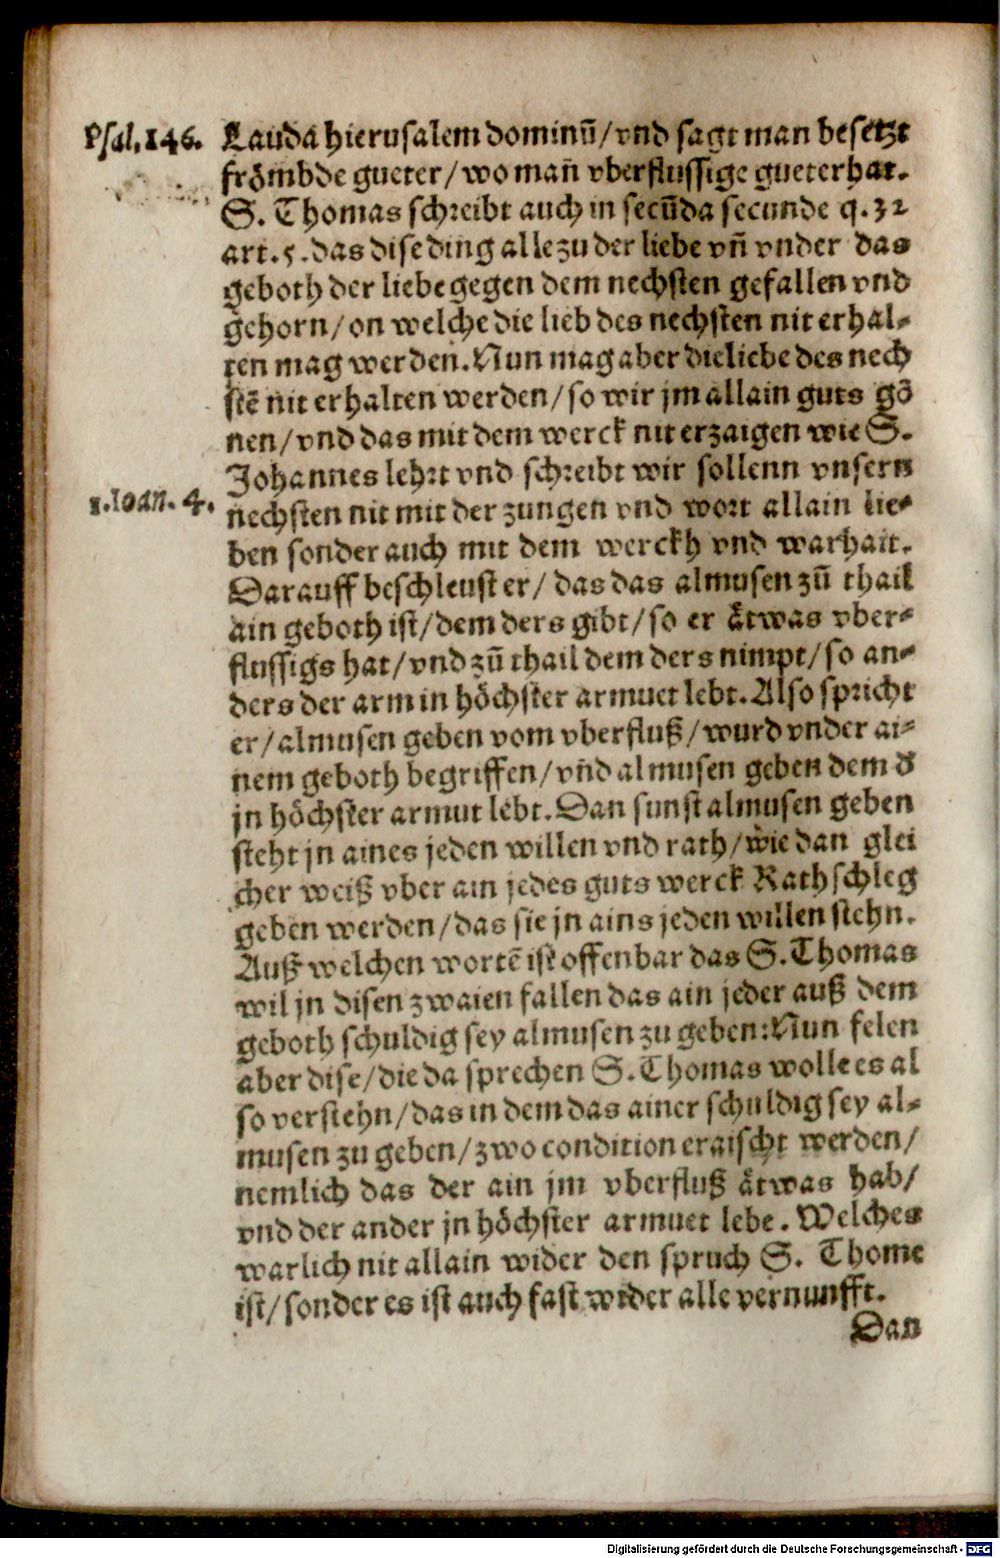 Psal. 146. Lauda hierusalem dominū/ vnd sagt man besetzt
frömbde gueter/ wo mañ vberflussige gueter hat.
S. Thomas schreibt auch in secūda secunde q. 32
art. 5. das dise ding alle zu der liebe vñ vnder das
geboth der liebe gegen dem nechsten gefallen vnd
gehorn/ on welche die lieb des nechsten nit erhal-
ten mag werden. Nun mag aber die liebe des nech
stē nit erhalten werden/ so wir jm allain guts gō
nen/ vnd das mit dem werck nit erzaigen wie S.
Johannes lehrt vnd schreibt wir sollenn vnsern
1. Ioan. 4. nechsten nit mit der zungen vnd wort allain lie-
ben sonder auch mit dem werckh vnd warhait.
Darauff beschleust er/ das das almusen zū thail
ain geboth ist/ dem ders gibt/ so er ätwas vber-
flussigs hat/ vnd zū thail dem ders nimpt/ so an-
ders der arm in höchster armuet lebt. Also spricht
er/ almusen geben vom vberfluß/ wurd vnder ai-
nem geboth begriffen/ vñd almusen geben dem d̕
jn höchster armut lebt. Dan sunst almusen geben
steht jn aines jeden willen vnd rath/ wie dan glei
cher weiß vber ain jedes guts werck Rathschleg
geben werden/ das sie jn ains jeden willen stehn.
Auß welchen wortē ist offenbar das S. Thomas
wil jn disen zwaien fallen das ain jeder auß dem
geboth schuldig sey almusen zu geben: Nun felen
aber dise/ die da sprechen S. Thomas wolle es al
so verstehn/ das in dem das ainer schuldig sey al-
musen zu geben/ zwo condition eraischt werden/
nemlich das der ain jm vberfluß ätwas hab/
vnd der ander jn höchster armuet lebe. Welches
warlich nit allain wider den spruch S. Thome
ist/ sonder es ist auch fast wider alle vernunfft.
Dan
Digitalisierung gefördert durch die Deutsche Forschungsgemeinschaft - DFG